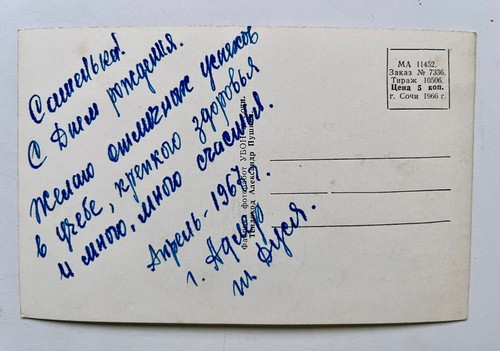 Сашенька!
С Днем рождения.
Желаю отличных успехов
в учебе, крепкого здоровья
и много, много счастья.
Апрель - 1967
г. Адлер
Дуся.
МА 11452.
Заказ № 7336.
Тираж 10506.
Цена 5 коп.
г. Сочи 1966 г.
Фабрика фоторабот УБОН г. Сочи.
Теплоход Александр Пушкин